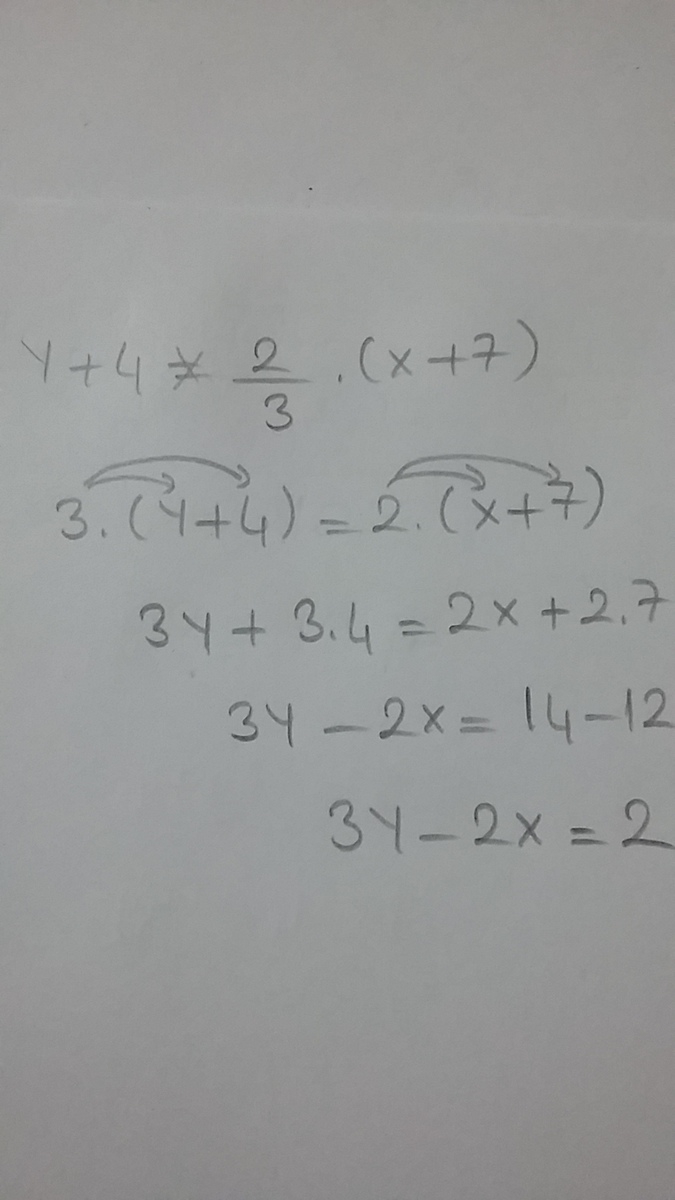 y+4 = 2/3 .(x+7)
3.(y+4) = 2.(x+7)
3y + 3.4 = 2x + 2.7
3y - 2x = 14-12
3y - 2x = 2